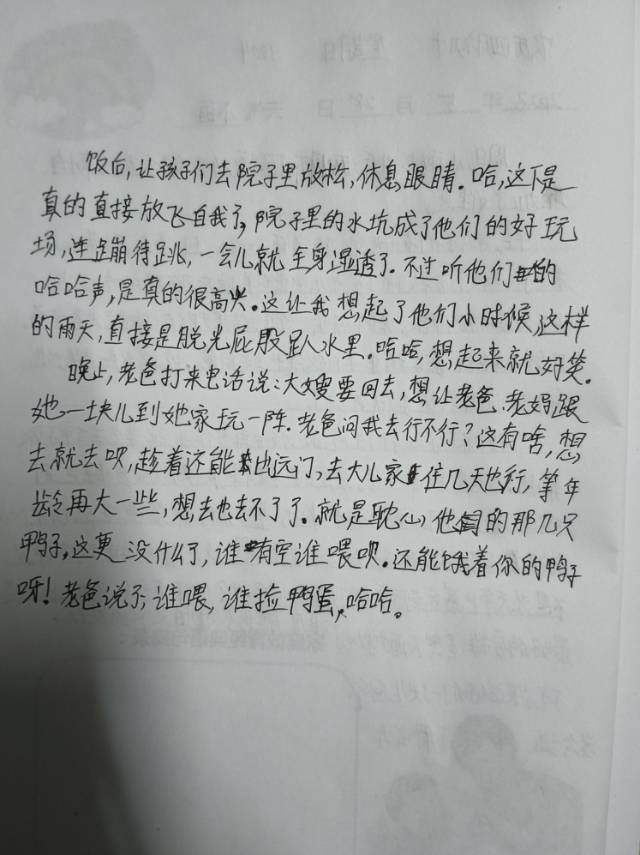 饭后,让孩子们去院子里放松,休息眼睛.哈,这下是
真的直接放飞自我了,院子里的水坑成了他们的好玩
场,连蹦待跳,一会儿就全身湿透了.不过听他们的
哈哈声,是真的很高兴.这让我想起了他们小时候,这样
的雨天,直接是脱光屁股趴水里.哈哈,想起来就好笑.
晚上,老爸打来电话说:大嫂要回去,想让老爸.老妈跟
她一块儿到她家玩一阵.老爸问我去行不行?这有啥,想
去就去呗,趁着还能出远门,去大儿家住几天也行,等年
龄再大一些,想去也去不了了.就是耽心他们的那几只
鸭子,这更没什么了,谁有空谁喂呗.还能饿着你的鸭子
呀!老爸说了,谁喂,谁捡鸭蛋,哈哈。